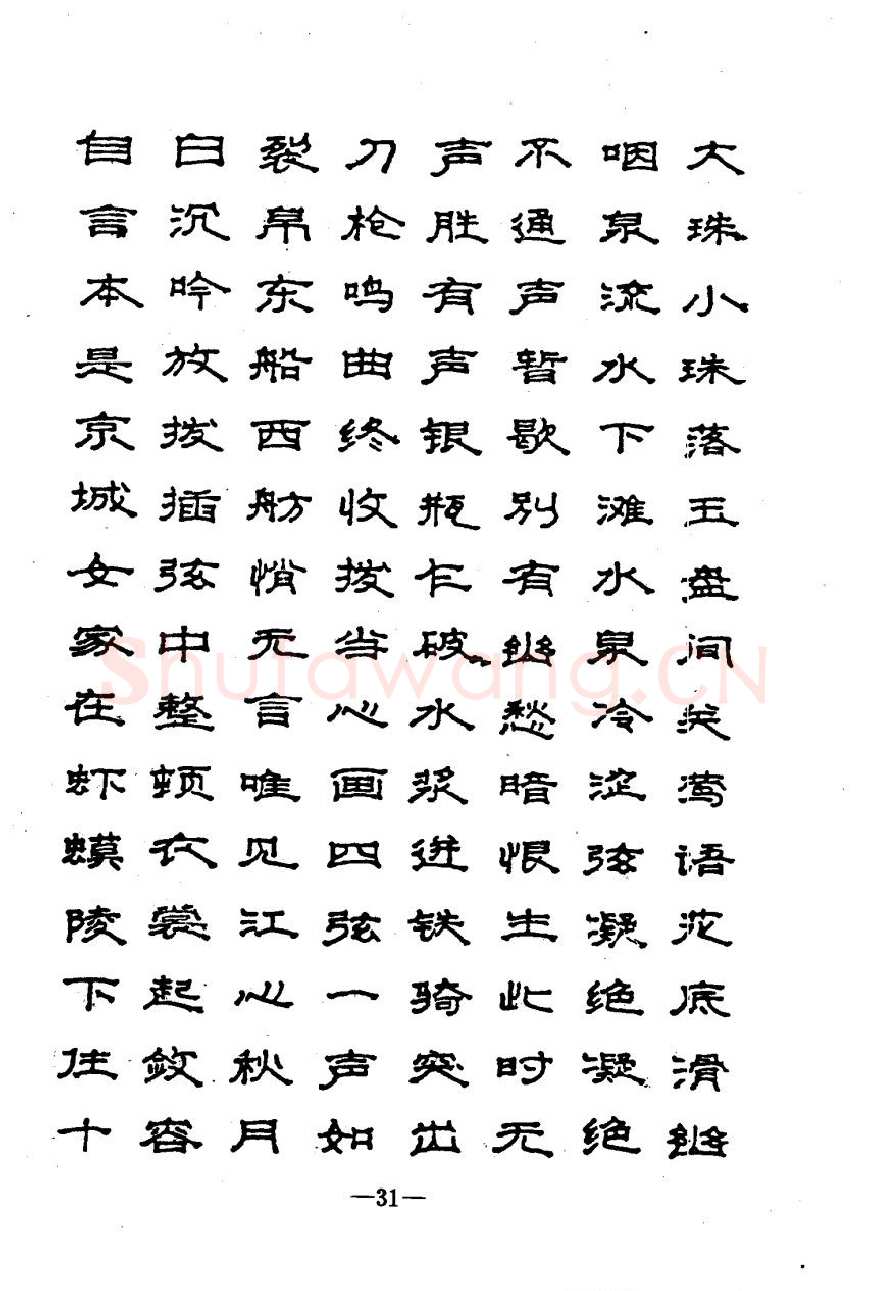 大珠小珠落玉盘间关莺语花底滑幽
咽泉流水下滩水泉冷涩弦凝绝凝绝
不通声暂歇别有幽愁暗恨生此时无
声胜有声银瓶乍破水浆迸铁骑突出
刀枪鸣曲终收拨当心画四弦一声如
裂帛东船西舫悄无言唯见江心秋月
白沉吟放拨插弦中整顿衣裳起敛容
自言本是京城女家在虾蟆陵下住十
Shufawang.CN
—31—